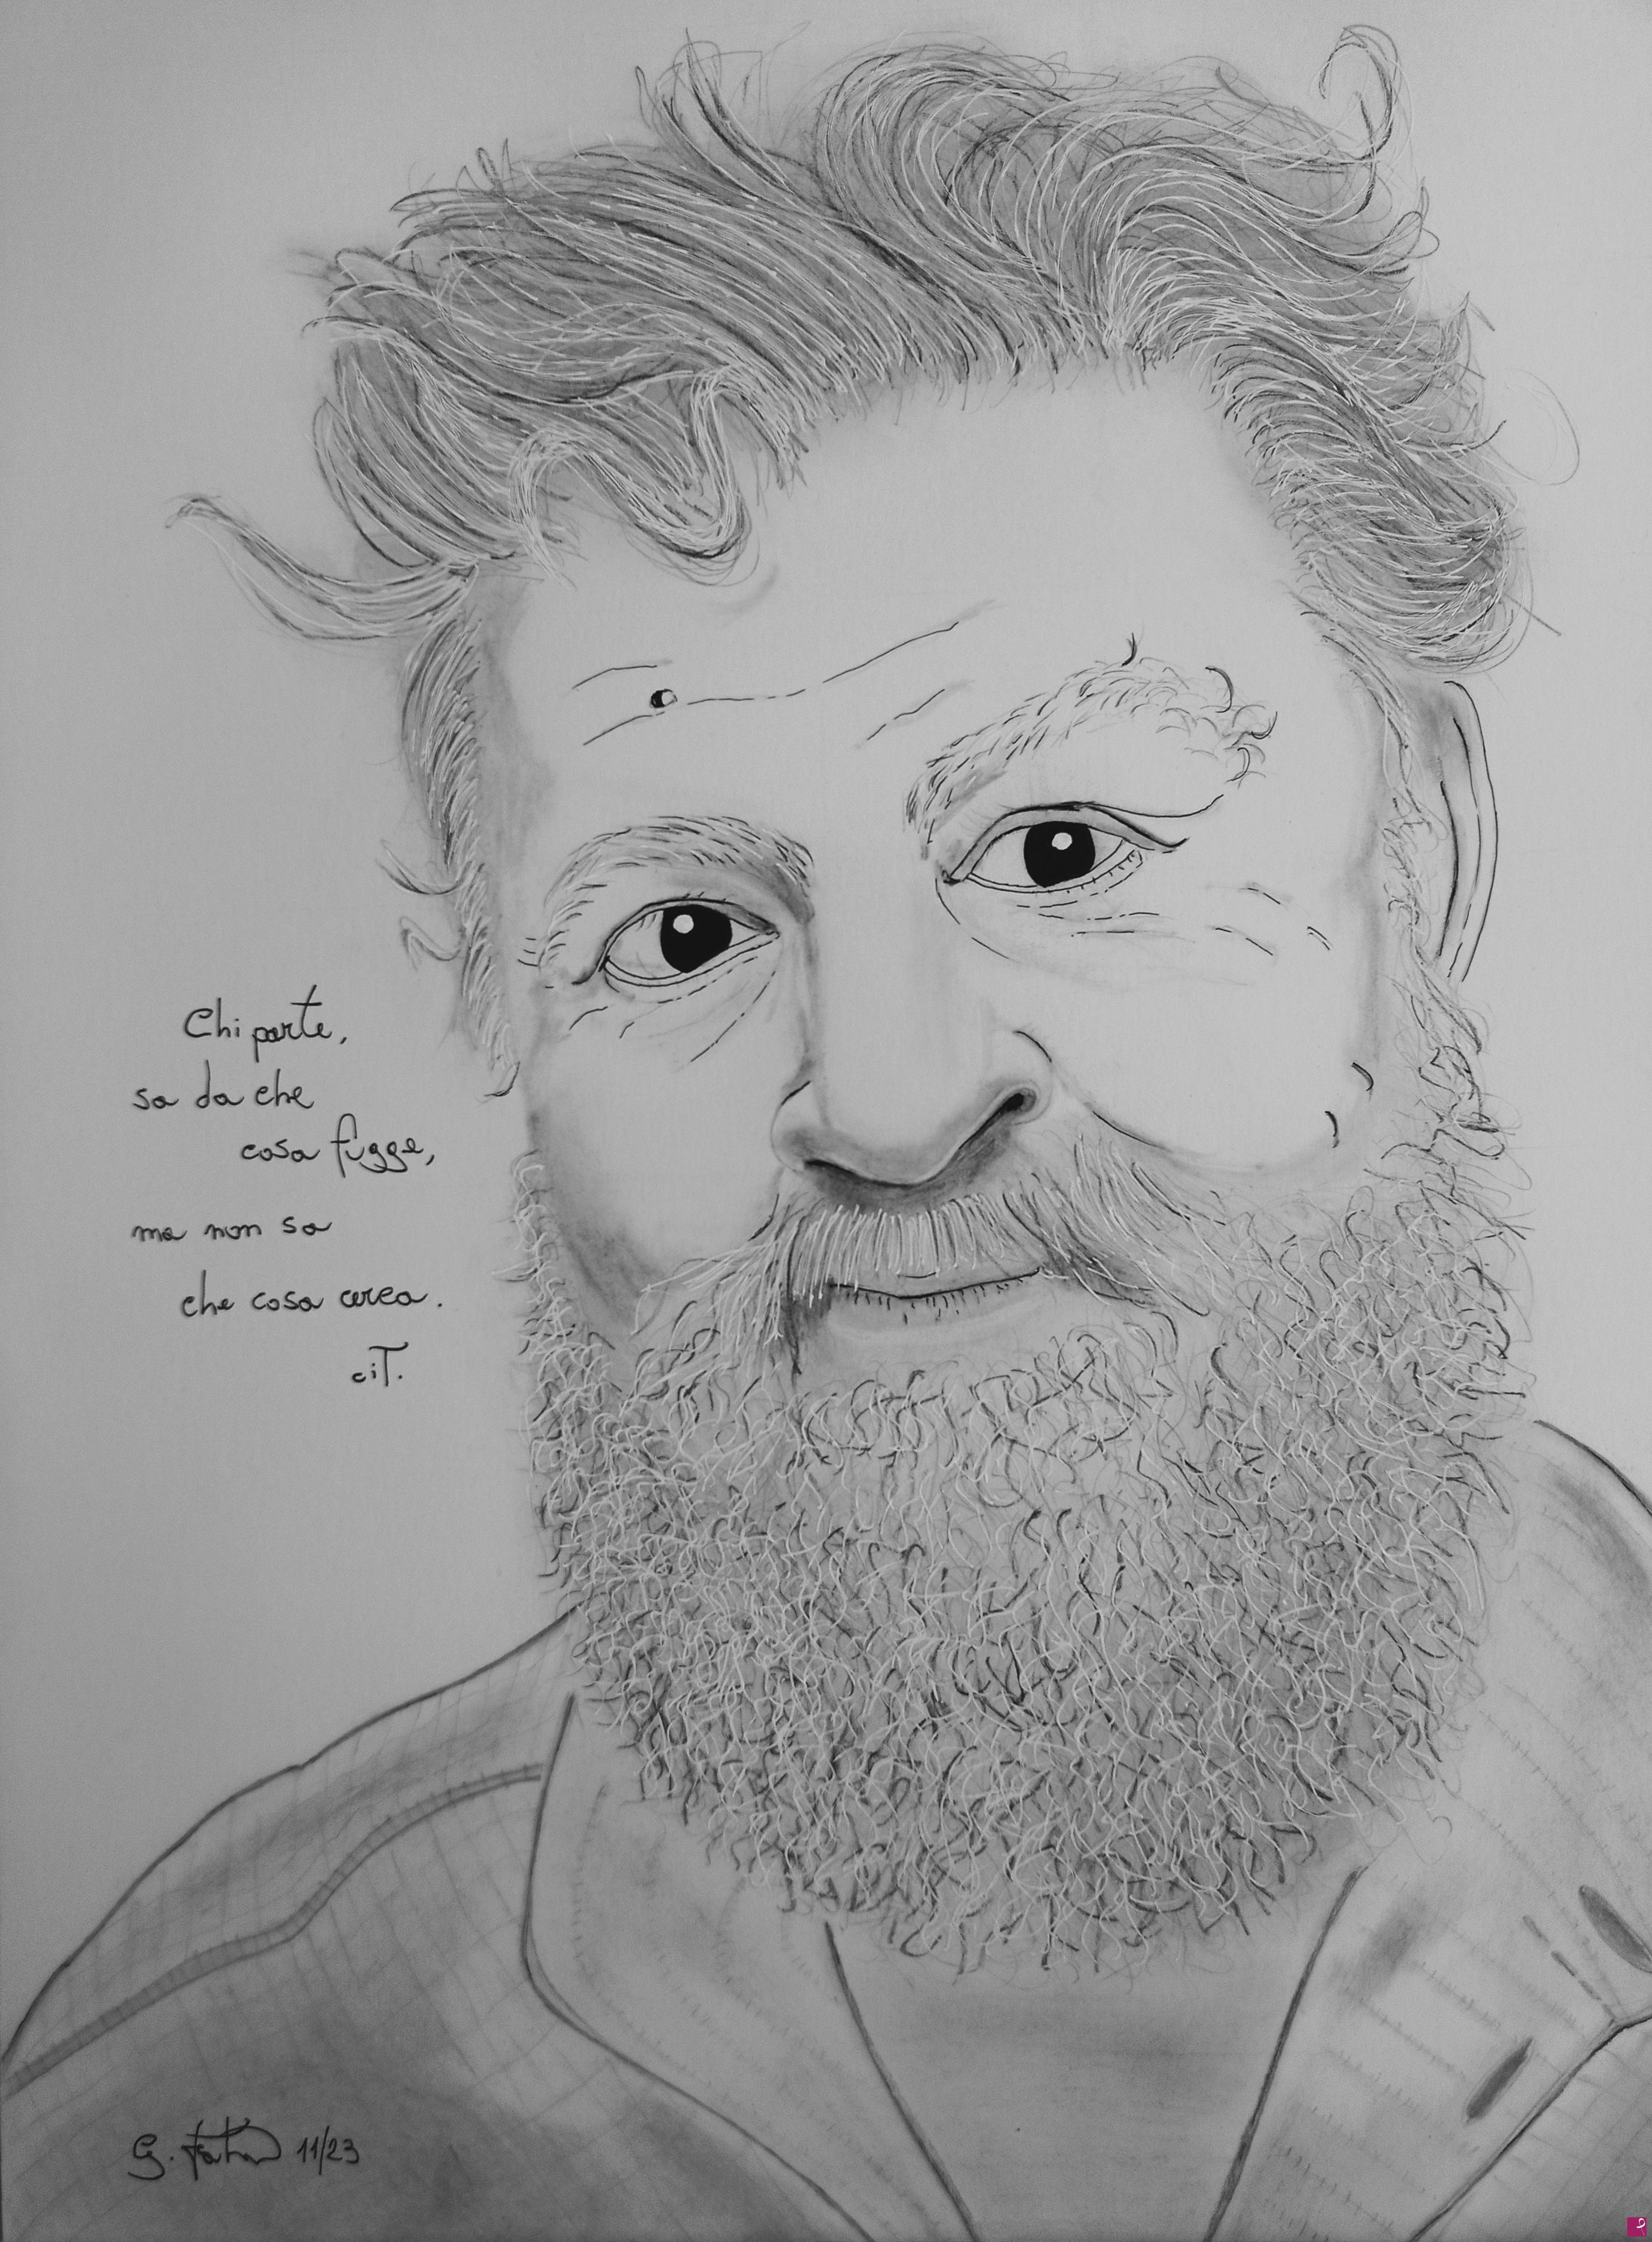 Chi parte,
sa da che
cosa fugge,
ma non sa
che cosa cerca.
cit.
G. 11/23